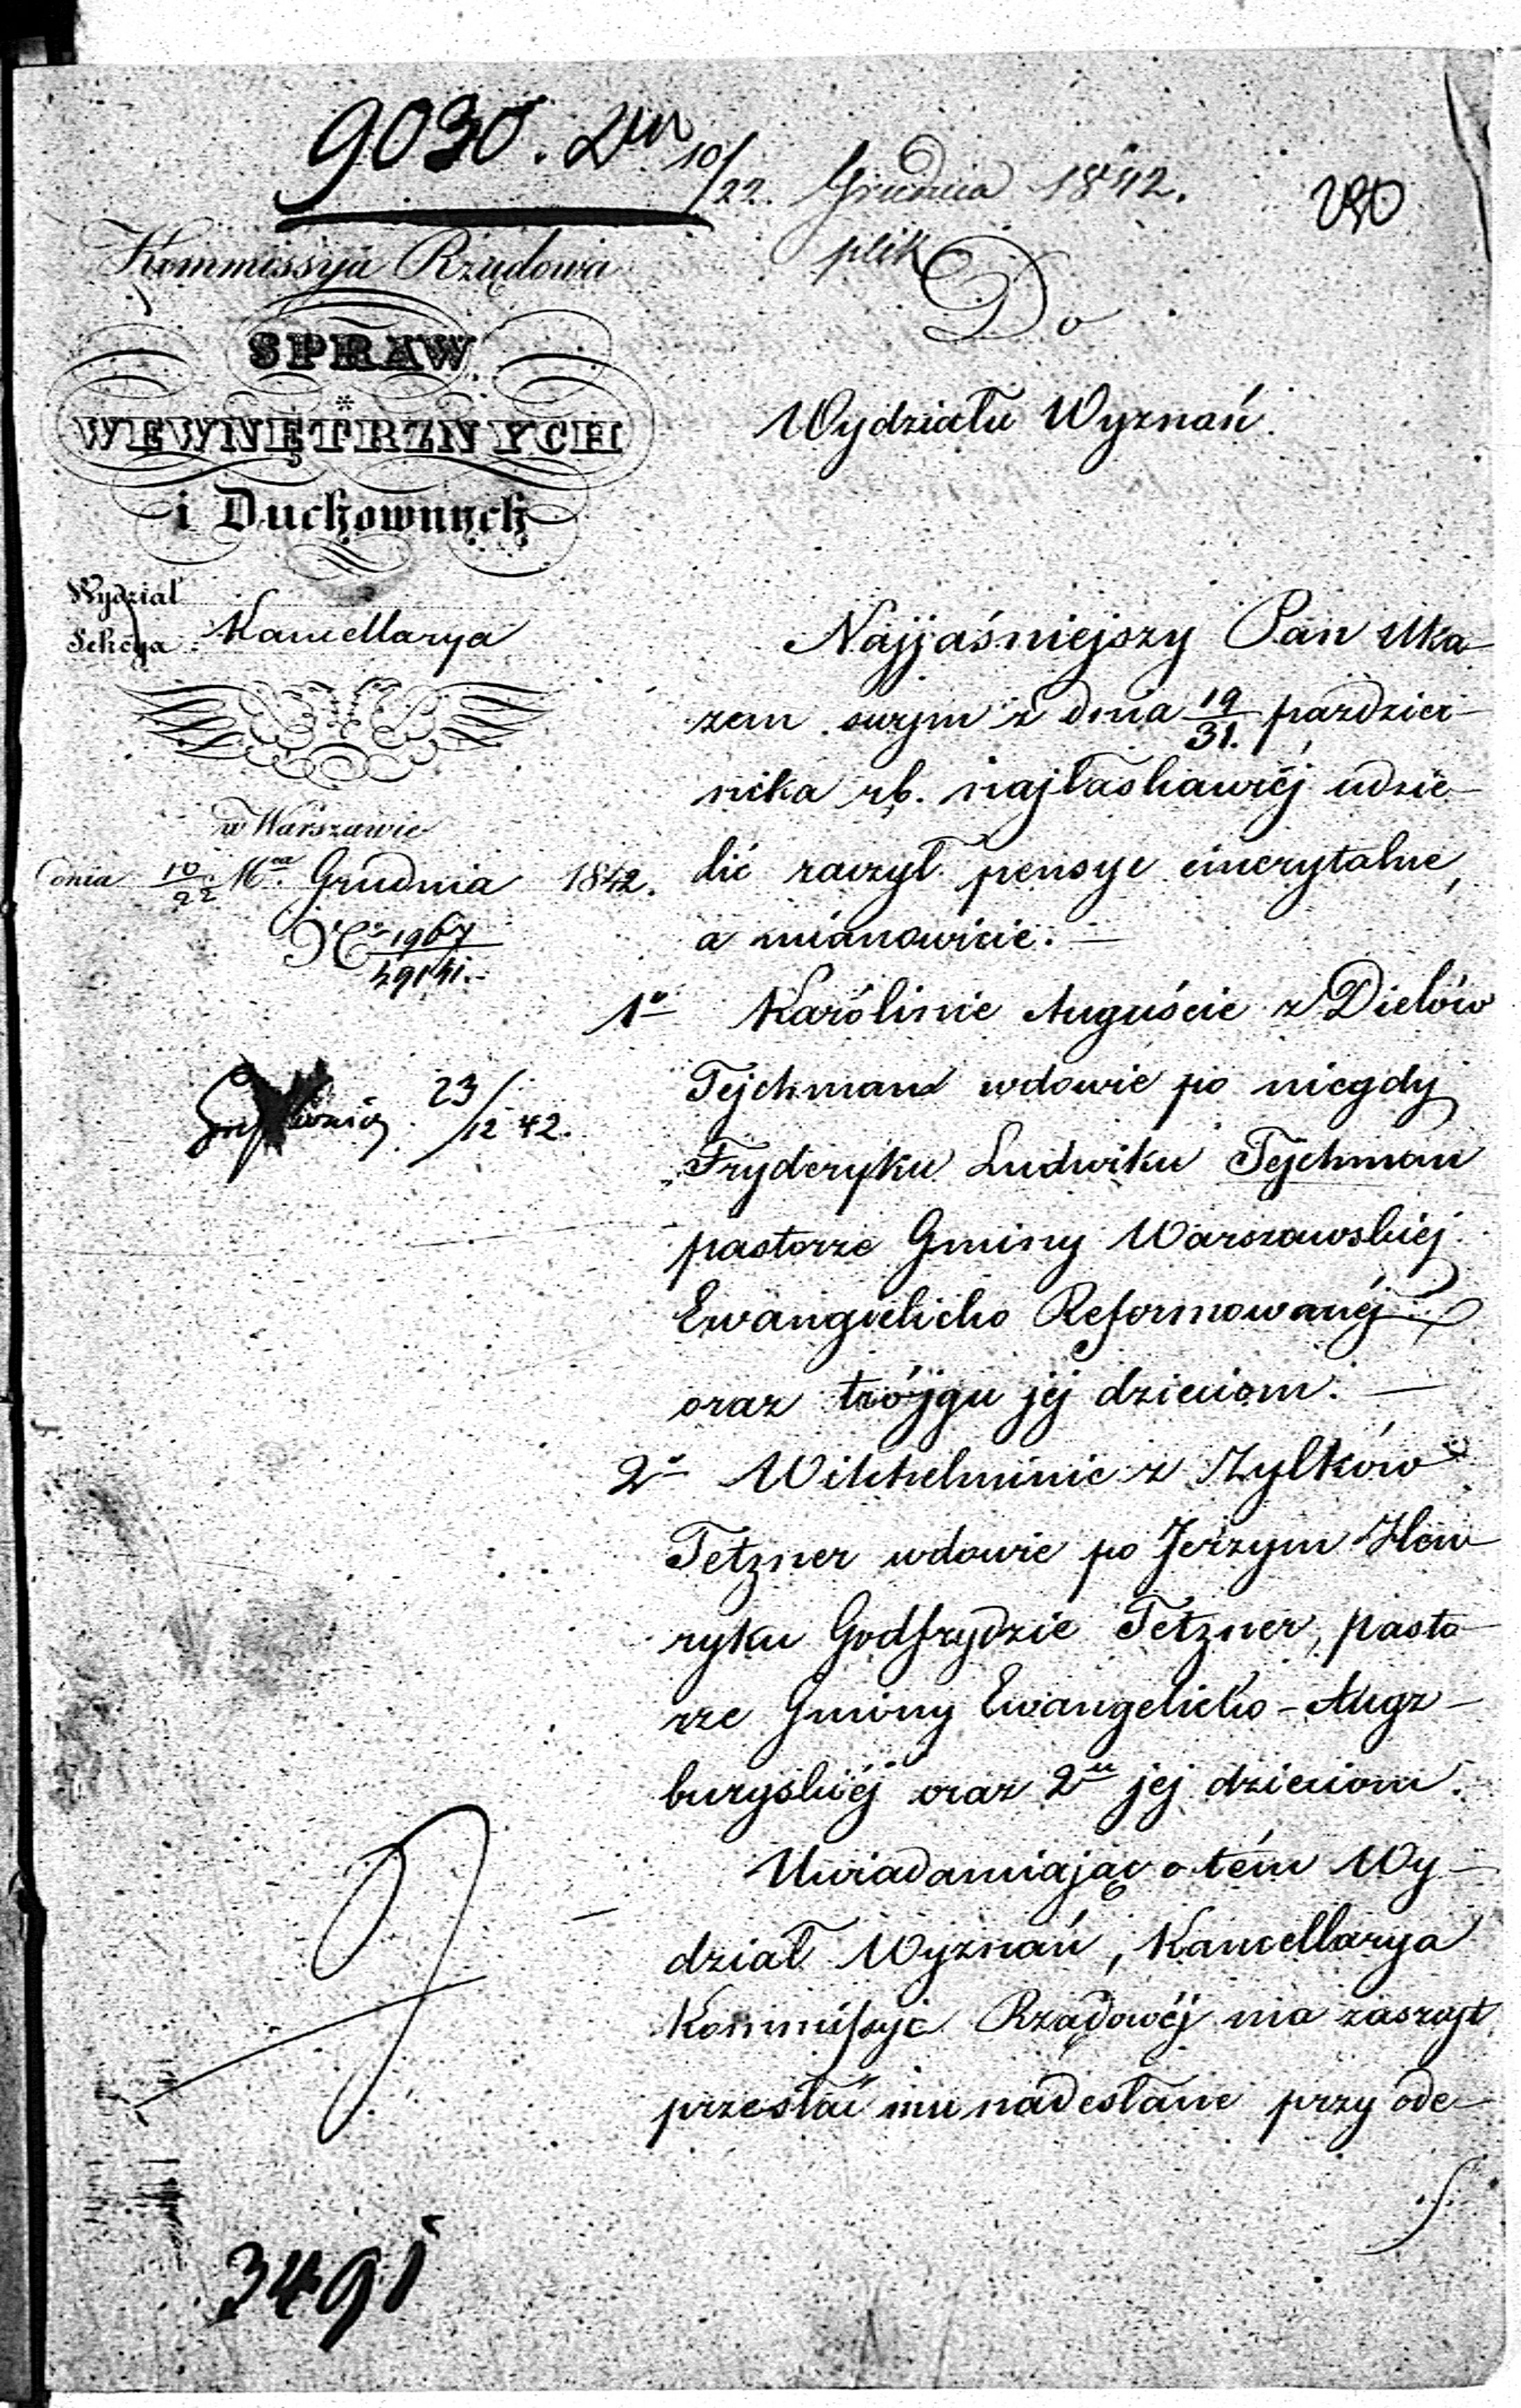 9030. Dn 10/22. Grudnia 1842.
290
plik
Kommissya Rządowa
SPRAW
WEWNĘTRZNYCH
i Duchownych
Wydział
Sekcya Kancellarya
w Warszawie
Dnia 10/22 Mca Grudnia 1842.
No 1967
23/12 42.
3491
Do
Wydziału Wyznań.
Najjaśniejszy Pan Uka-
zem swym z dnia 19/31. paździer-
nika rb. najłaskawiéj udzie-
lić raczył pensye emerytalne,
a mianowicie. —
1o Karolinie Auguście z Dielów
Tejchman wdowie po niegdy
Fryderyku Ludwiku Tejchman
pastorze Gminy Warszawskiéj
Ewangielicko Reformowanéj
oraz trójgu jéj dzieciom. —
2o Wilhelminie z Zylków
Tetzner wdowie po Jerzym Hen-
ryku Godfrydzie Tetzner, pasto-
rze Gminy Ewangelicko-Augz-
burgskiéj oraz 2u jej dzieciom.
Uwiadamiając o tém Wy-
dział Wyznań, Kancellarya
Kommissyi Rządowéj ma zaszczyt
przesłać mu nadesłane przy ode-